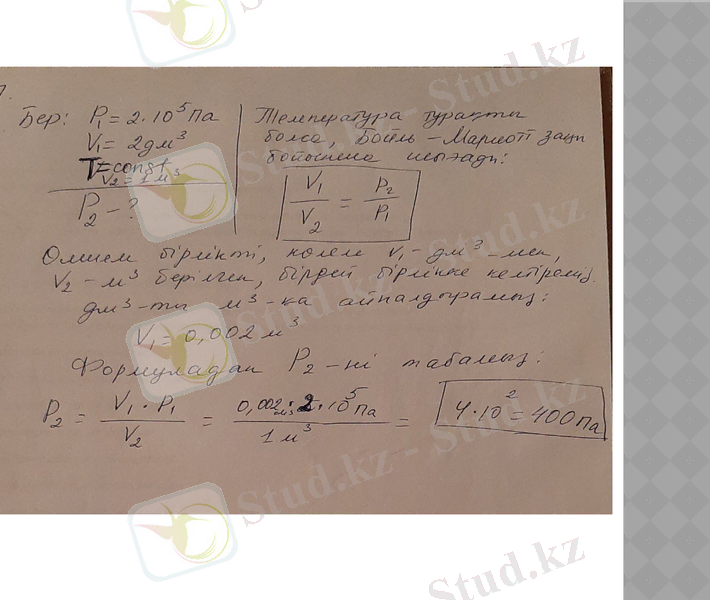 Stud.kz - Stud.kz
Бер: P₁ = 2·10⁵ Па
V₁ = 2дм³
T=const
V₂ = 1 м³
P₂ - ?
Температура тұрақты
болса, Бойль-Мариотт заңы
бойынша шығады:
V₁/V₂ = P₂/P₁
Өлшем бірлікті, көлем V₁ - дм³ -мен,
V₂ - м³ берілген, бірдей бірлікке келтіреміз.
дм³-ты м³-қа айналдырамыз:
V₁ = 0,002 м³
Формуладан P₂ -ні табамыз:
P₂ = V₁·P₁/V₂ = 0,002 м³·2·10⁵Па/1 м³ = 4·10² = 400 Па
Stud.kz - Stud.kz
Stud.kz - Stud.kz
Stud.kz
Stud.kz